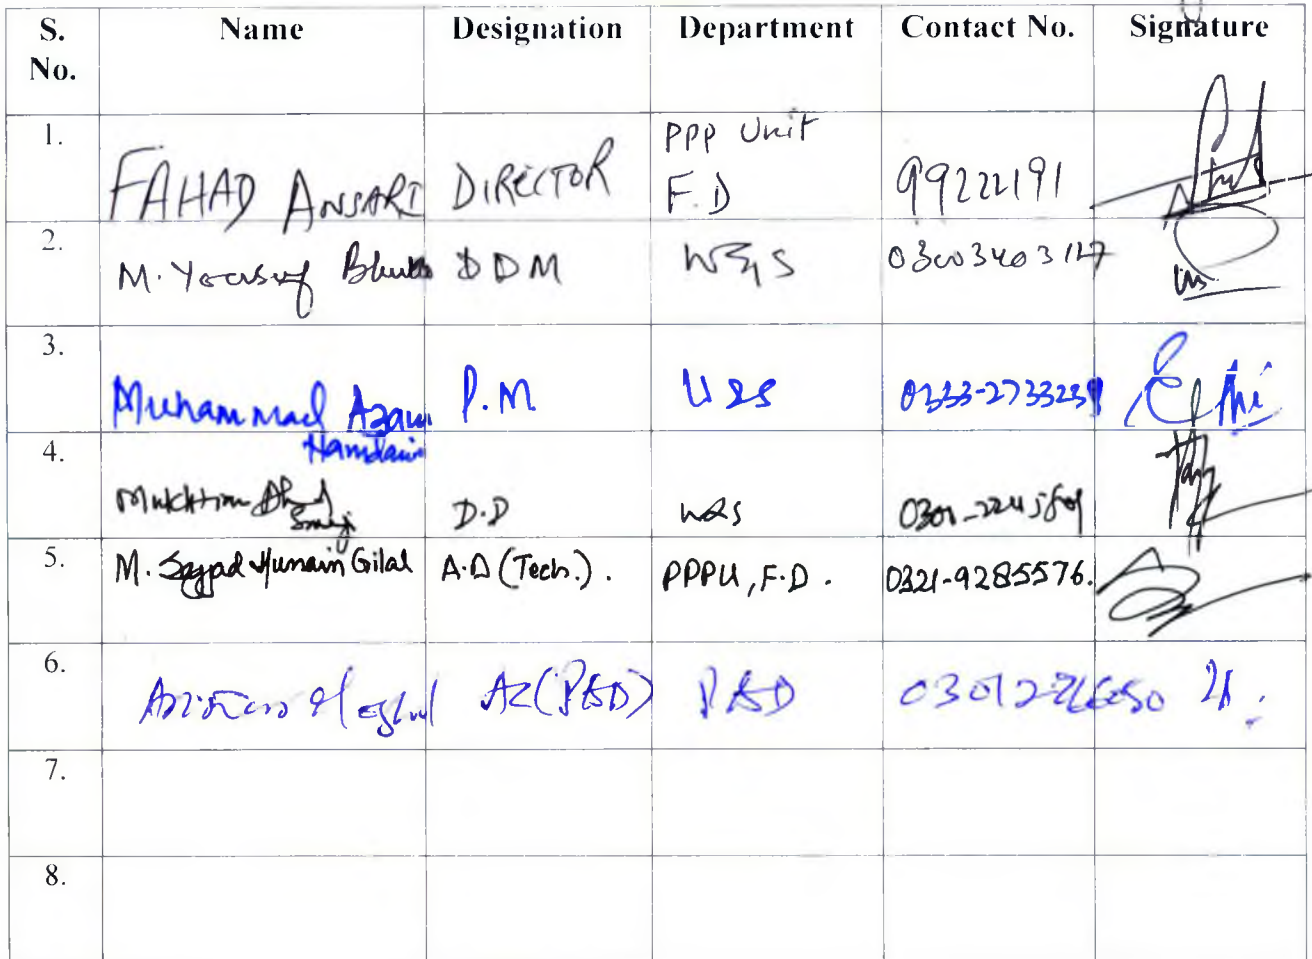 S. No. Name Designation Department Contact No. Signature
1. FAHAD ANSARI DIRECTOR PPP Unit F.D 99222191
2. M. Yousuf DDM W&S 03003403127
3. Muhammad Azam Hamdani P.M. U&S 0333-2733239
4. D.D W&S
5. M. Sajjad Hunain Gilal A.D (Tech.). PPPU, F.D. 0321-9285576.
6. (P&D) P&D
7.
8.